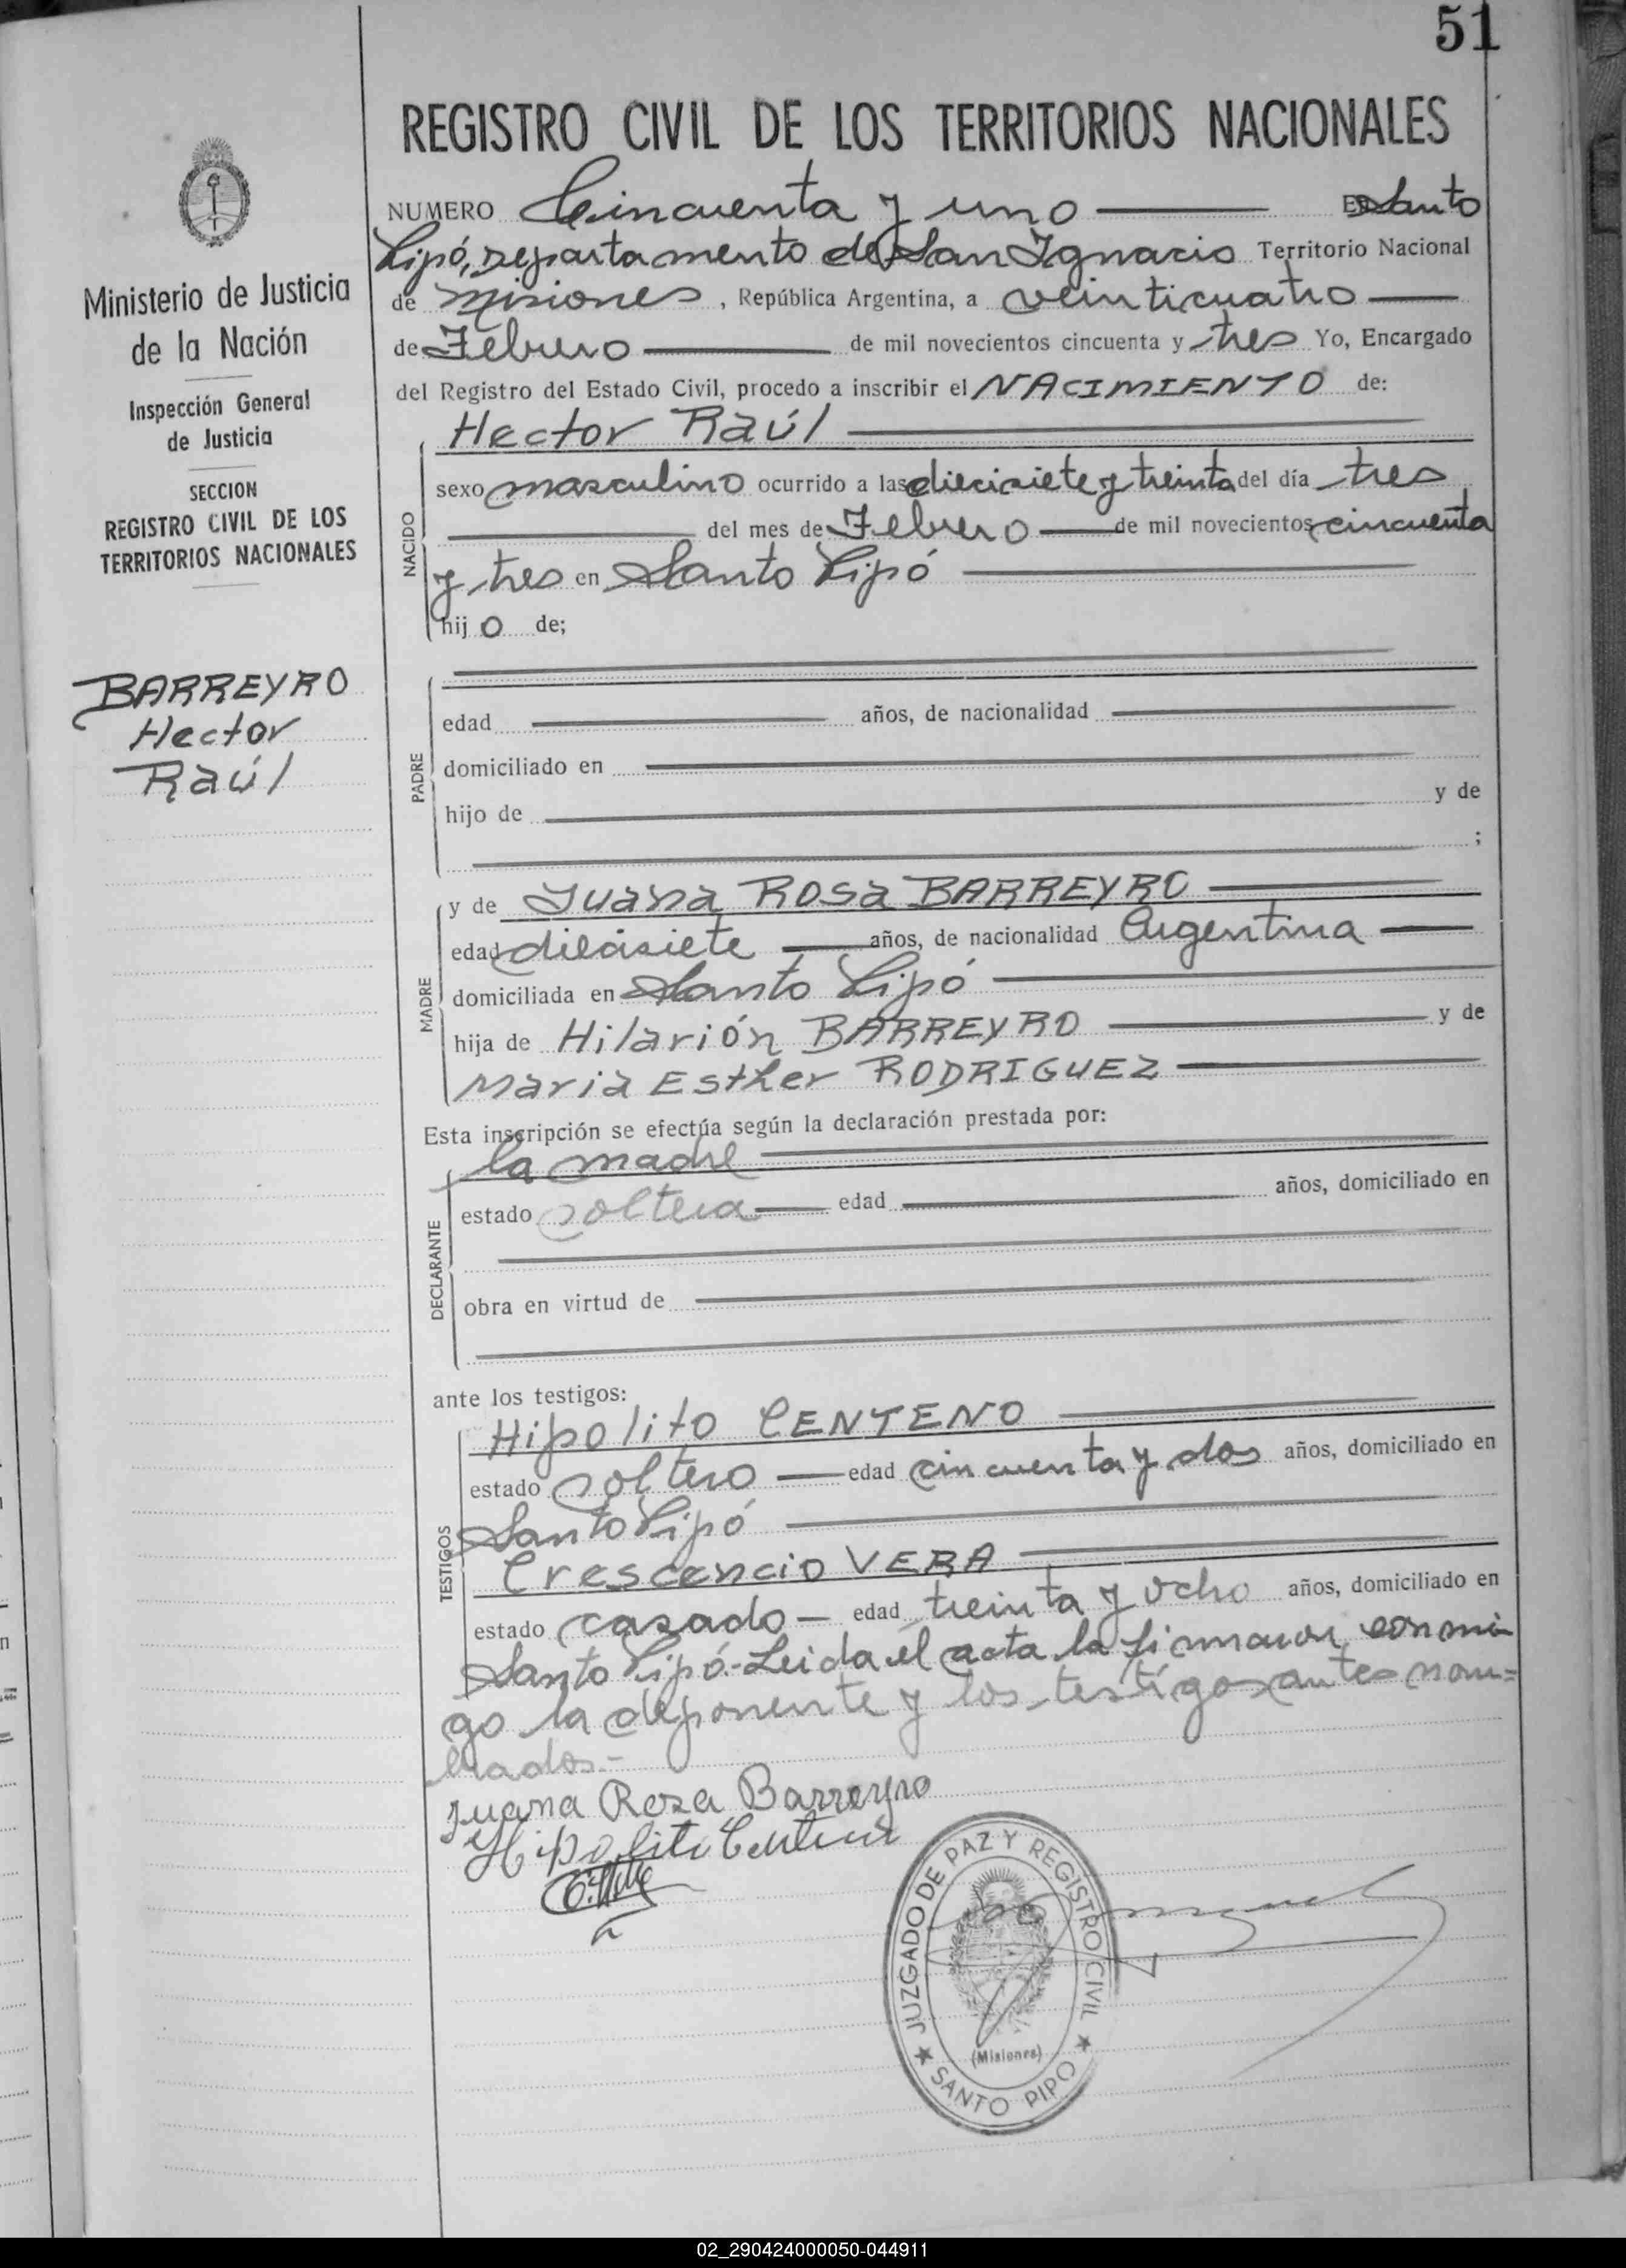 51
REGISTRO CIVIL DE LOS TERRITORIOS NACIONALES
Ministerio de Justicia
de la Nación
Inspección General
de Justicia
SECCION
REGISTRO CIVIL DE LOS
TERRITORIOS NACIONALES
BARREYRO
Hector
Raúl
NUMERO Cincuenta y uno En Santo
Pipó, Departamento de San Ignacio Territorio Nacional
de Misiones, República Argentina, a veinticuatro
de Febrero de mil novecientos cincuenta y tres Yo, Encargado
del Registro del Estado Civil, procedo a inscribir el NACIMIENTO de:
Hector Raúl
NACIDO
sexo masculino ocurrido a las diecisiete y treinta del día tres
del mes de Febrero de mil novecientos cincuenta
y tres en Santo Pipó
hijo de;
PADRE
edad años, de nacionalidad
domiciliado en
hijo de y de
;
MADRE
y de Juana Rosa BARREYRO
edad diecisiete años, de nacionalidad Argentina
domiciliada en Santo Pipó
hija de Hilarión BARREYRO y de
Maria Esther RODRIGUEZ
Esta inscripción se efectúa según la declaración prestada por:
la madre
DECLARANTE
estado soltera edad años, domiciliado en
obra en virtud de
ante los testigos:
TESTIGOS
Hipolito CENTENO
estado soltero edad cincuenta y dos años, domiciliado en
Santo Pipó
Crescencio VERA
estado casado edad treinta y ocho años, domiciliado en
Santo Pipó.- Leida el acta la firmaron conmi-
go la deponente y los testigos antes nom=
brados.-
Juana Rosa Barreyro
Hipolito Centeno
JUZGADO DE PAZ Y REGISTRO CIVIL
(Misiones)
★ SANTO PIPO ★
02_290424000050-044911